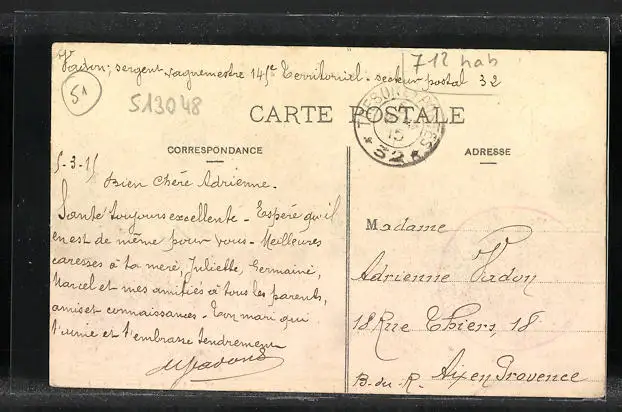 Vadon, sergent vaguemestre 145e Territorial - secteur postal 32
712 hab
51
513048
CARTE POSTALE
TRESOR ET POSTES
15
* 32 *
CORRESPONDANCE
ADRESSE
5-3-15
Bien chère Adrienne.
Santé toujours excellente - Espère qu'il
en est de même pour vous - Meilleures
caresses à ta mère, Juliette, Germaine,
Marcel et mes amitiés à tous les parents,
amis et connaissances. Ton mari qui
t'aime et t'embrasse tendrement
Madame
Adrienne Vadon
18 Rue Thiers, 18
B.-du-R. Aix en Provence